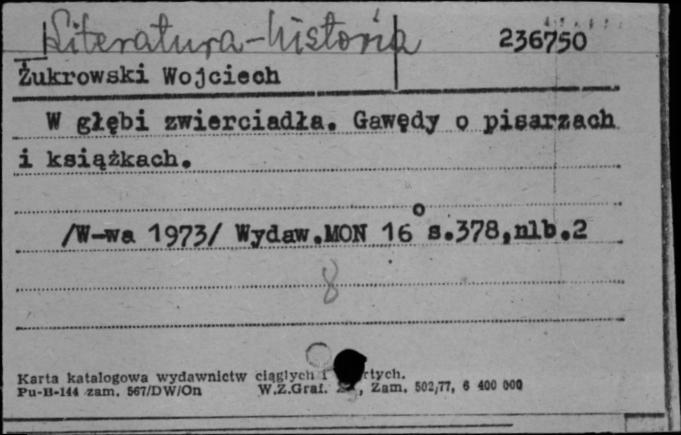 Literatura-historia 236750
Żukrowski Wojciech
W głębi zwierciadła. Gawędy o pisarzach
i książkach.
/W-wa 1973/ Wydaw.MON 16° s.378,nlb.2
8
Karta katalogowa wydawnictw ciągłych i rtych.
Pu-B-144 zam. 567/DW/On W.Z.Graf. Zam. 502/77, 6 400 000